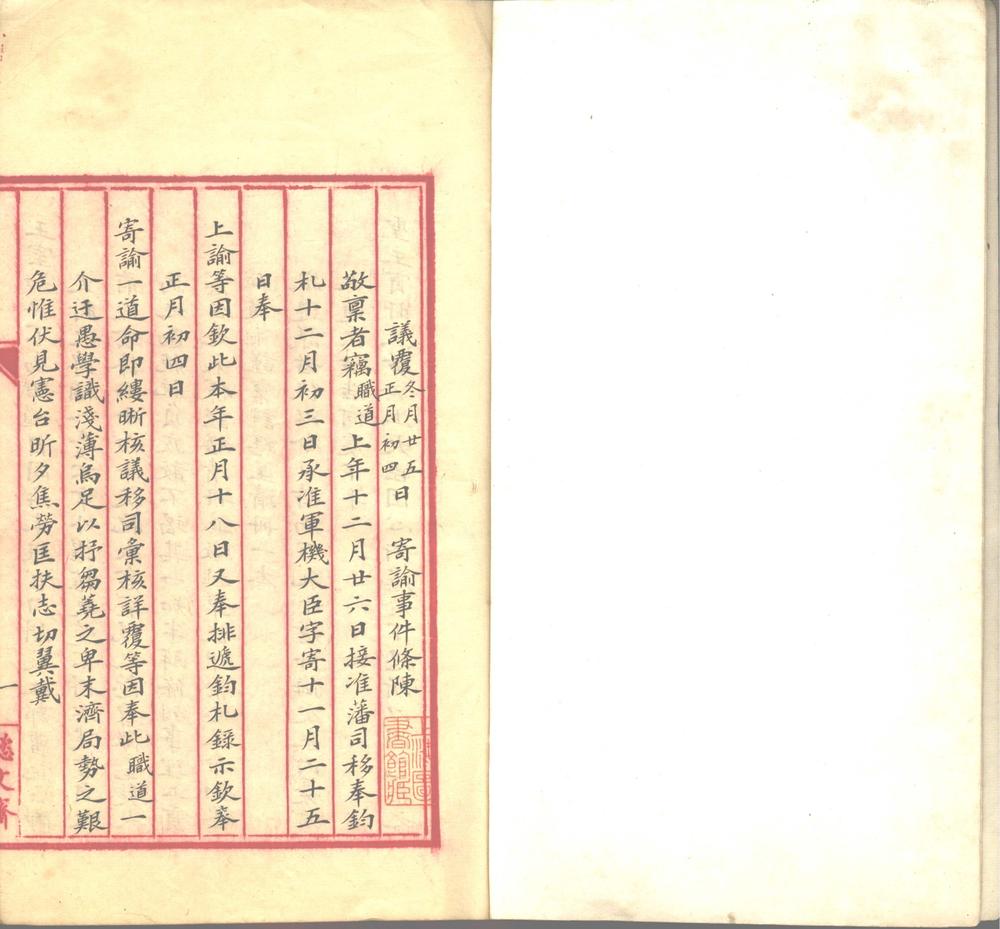 議覆冬月廿五正月初四日寄諭事件條陳
敬稟者竊職道上年十二月廿六日接准藩司移奉鈞
札十二月初三日承准軍機大臣字寄十一月二十五
日奉
上諭等因欽此本年正月十八日又奉排遞鈞札錄示欽奉
正月初四日
寄諭一道命即縷晰核議移司彙核詳覆等因奉此職道一
介迂愚學識淺薄烏足以抒芻蕘之卑末濟局勢之艱
危惟伏見憲台昕夕焦勞匡扶志切翼戴
一